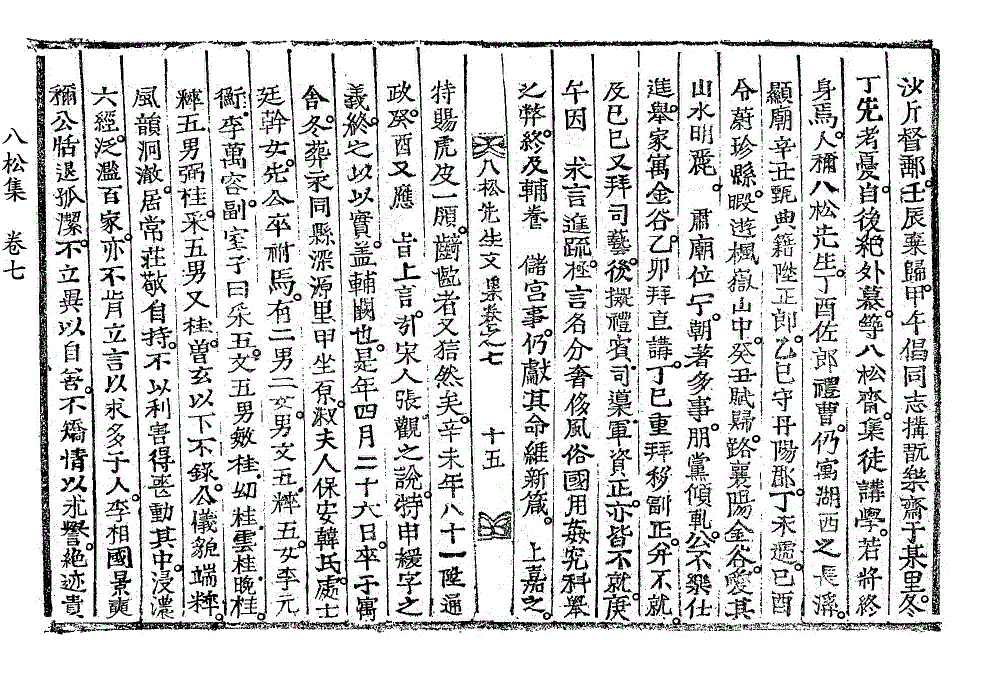 沙斤督郵。壬辰棄歸。甲午倡同志搆翫樂齋于某里。冬
丁先考憂。自後絶外慕。等八松齋。集徒講學。若將終
身焉。人稱八松先生。丁酉佐郎禮曹。仍寓湖西之長溪。
顯廟辛丑甄典籍陞正郎。乙巳守丹陽郡。丁未遞。己酉
令蔚珍縣。暇遊楓嶽山中。癸丑賦歸。路襄陽金谷。愛其
山水明麗。 肅廟位宁。朝著多事。朋黨傾軋。公不樂仕
進。擧家寓金谷。乙卯拜直講。丁巳重拜移副正。幷不就
及己巳又拜司藝。後擬禮賓司䆃軍資正。亦皆不就。庚
午因 求言進疏。極言名分奢侈風俗國用姦宄科擧
之弊。終及輔養 儲宮事。仍獻其命維新箴。 上嘉之。
八松先生文集卷之七 十五
特賜虎皮一領。齮齕者又猘然矣。辛未年八十一陞通
政。癸酉又應 旨上言。引宋人張觀之說。特申緩字之
義。終之以以實。盖輔闕也。是年四月二十六日。卒于寓
舍。冬。葬永同縣深源里甲坐原。淑夫人保安韓氏。處士
廷幹女。先公卒祔焉。有二男二女。男文五,粹五。女李元
衡,李萬容。副室子曰采五。文五男敏桂,如桂,雲桂,晩桂。
粹五男弼桂。采五男又桂。曾玄以下不錄。公儀貌端粹。
風韻洞澈。居常莊敬自持。不以利害得喪動其中。浸濃
六經。泛濫百家。亦不肯立言以求多于人。李相國景奭
稱公恬退孤潔。不立異以自善。不矯情以求譽。絶迹貴
八松集 卷七